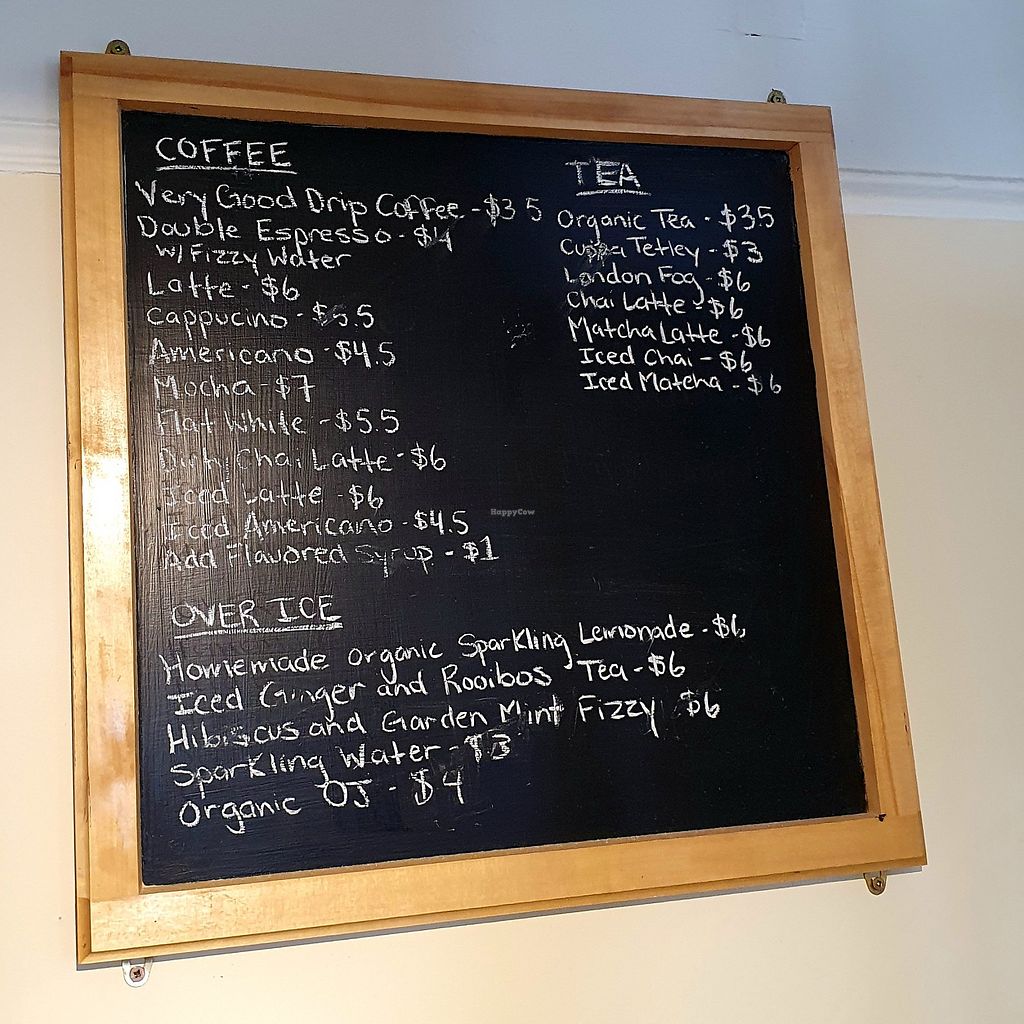 COFFEE
Very Good Drip Coffee - $3.5
Double Espresso - $4
w/ Fizzy Water
Latte - $6
Cappucino - $5.5
Americano - $4.5
Mocha - $7
Flat White - $5.5
Dirty Chai Latte - $6
Iced Latte - $6
Iced Americano - $4.5
Add Flavored Syrup - $1
TEA
Organic Tea - $3.5
Cuppa Tetley - $3
London Fog - $6
Chai Latte - $6
Matcha Latte - $6
Iced Chai - $6
Iced Matcha - $6
HappyCow
OVER ICE
Homemade Organic Sparkling Lemonade - $6
Iced Ginger and Rooibos Tea - $6
Hibiscus and Garden Mint Fizzy $6
Sparkling Water - $3
Organic OJ - $4